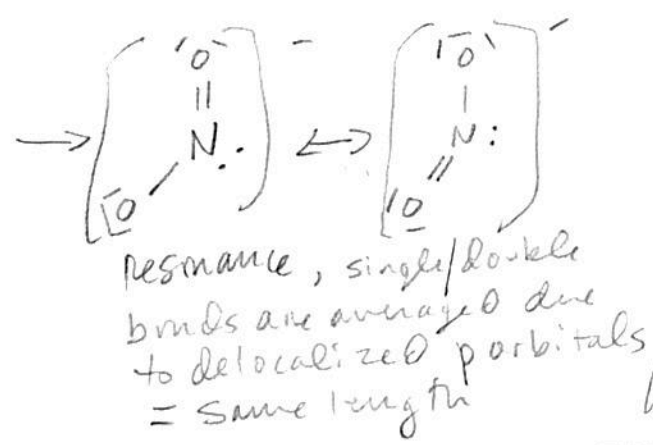 O O
N N
O O
resonance, single/double
bonds are averaged due
to delocalized p orbitals
= same length